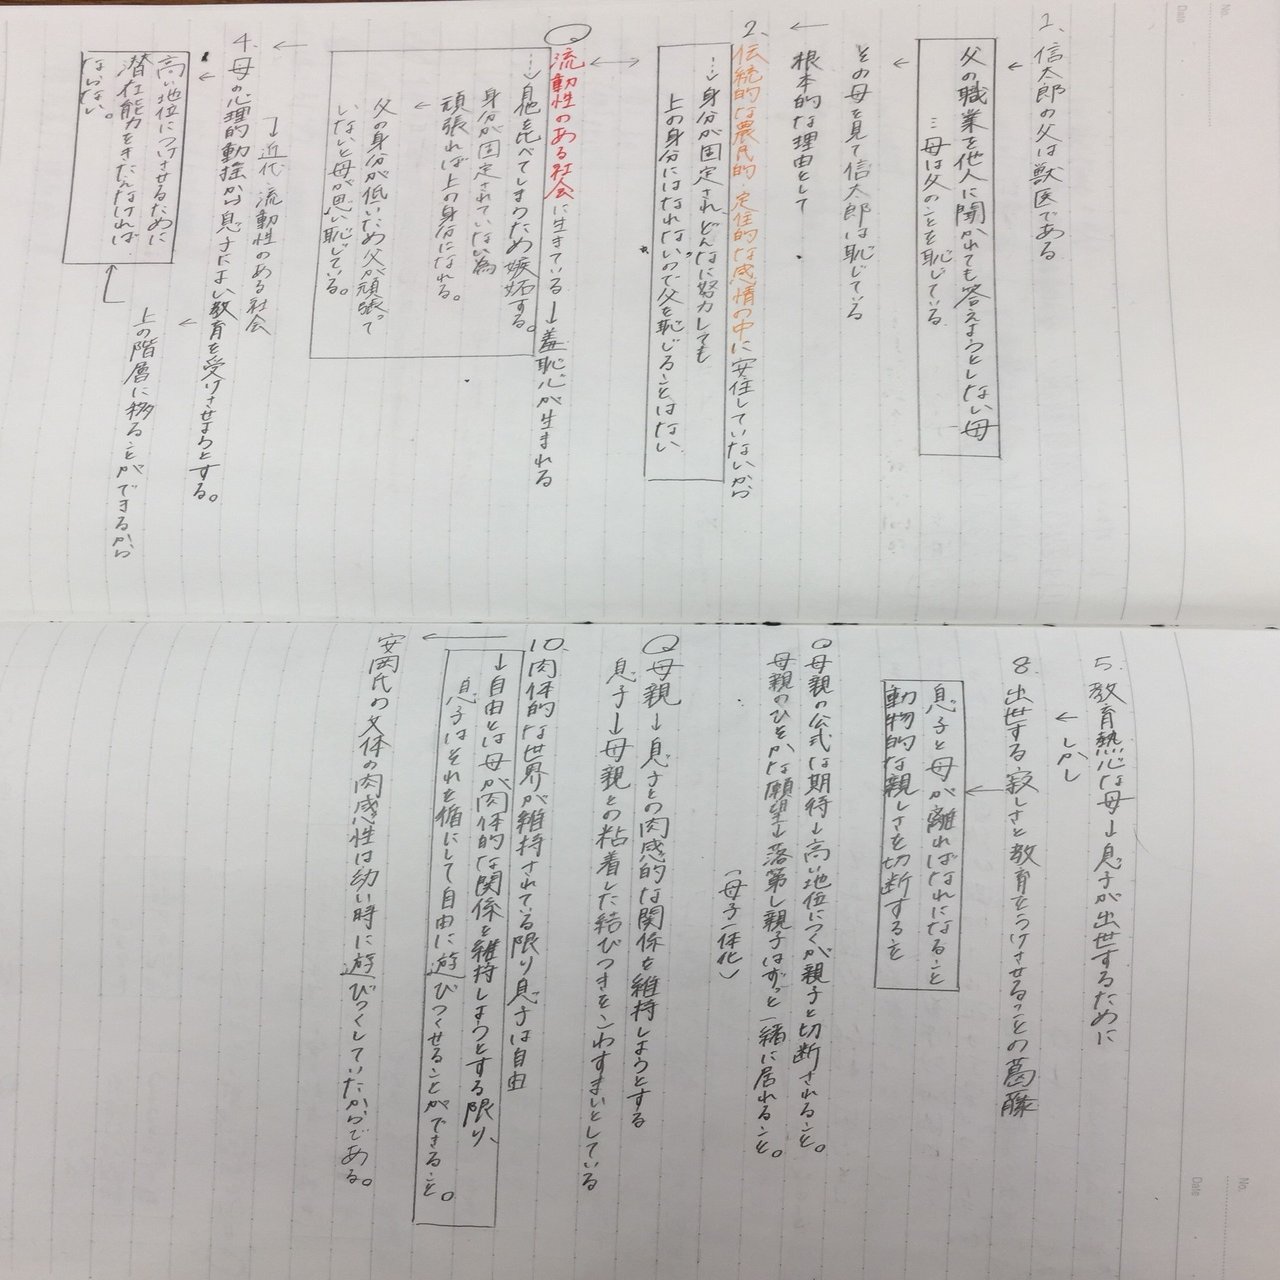 No.
Date
1、信太郎の父は獣医である
↓
父の職業を他人に聞かれても答えようとしない母
…母は父のことを恥じている
↓
その母を見て信太郎は恥じている
根本的な理由として
↓
2、伝統的な農民的・定住的な感情の中に安住していないから
…→身分が固定されどんなに努力しても
上の身分にはなれないので父を恥じることはない
↕
○流動性のある社会に生きている→羞恥心が生まれる
…→自他を比べてしまうため嫉妬する。
身分が固定されていない為
頑張れば上の身分になれる。
↓
父の身分が低いため父が頑張って
いないと母が思い恥じている。
↓
↳近代 流動性のある社会
4、母の心理的動揺から息子によい教育を受けさせようとする。
↓
上の階層に移ることができるから
↓
高い地位につけさせるために
潜在能力をきたえなければ
ならない。
No.
Date
5、教育熱心な母→息子が出世するために
↓しかし
8、出世する寂しさと教育をうけさせることの葛藤
↓
息子と母が離ればなれになること
動物的な親しさを切断すること
○母親の公式は期待→高い地位につくが親子と切断されること。
母親のひそかな願望→落第し親子はずっと一緒に居れること。
(母子一体化)
○母親→息子との肉感的な関係を維持しようとする
息子→母親との粘着した結びつきをこわすまいとしている
10、肉体的な世界が維持されている限り息子は自由
→自由とは母が肉体的な関係を維持しようとする限り、
息子はそれを楯にして自由に遊びつくせることができること。
↓
安岡氏の文体の肉感性は幼い時に遊びつくしていたからである。